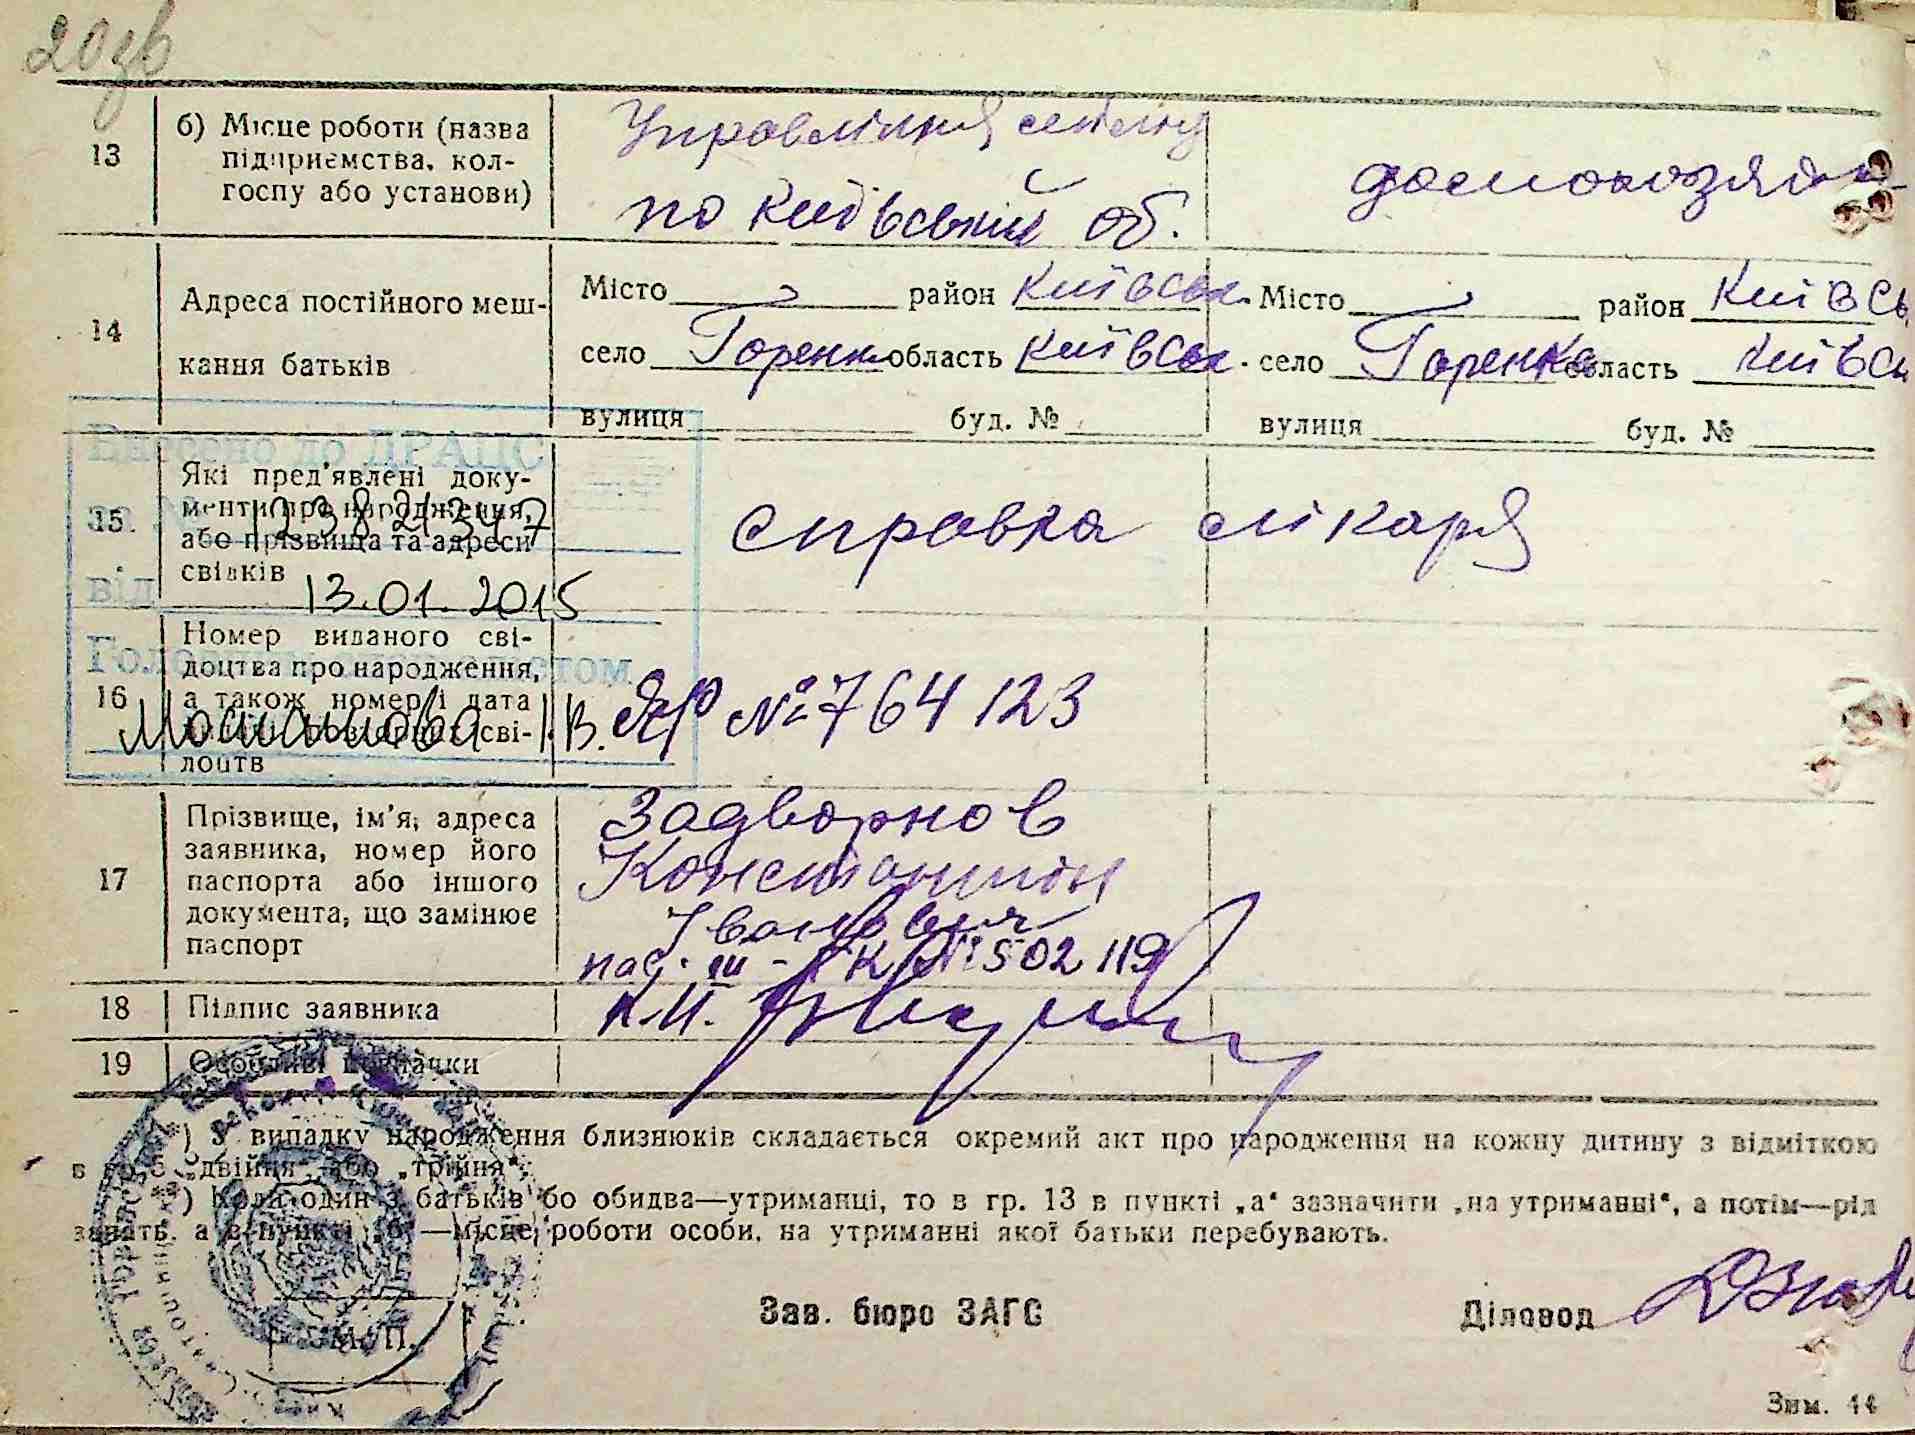 20зв
13
б) Місце роботи (назва
підприємства, кол-
госпу або установи)
Управління
по Київській об.
домохозяйка
14
Адреса постійного меш-
кання батьків
Місто район Київськ.
село Горенк область Київськ.
вулиця буд. №
Місто район Київсь
село Горенка область Київсь
вулиця буд. №
Внесено до ДРАЦС
за 123821347
від 13.01.2015
Головним спеціалістом
І.В.
15.
Які пред'явлені доку-
менти про народження,
або прізвища та адреси
свідків
справка лікаря
16
Номер виданого сві-
доцтва про народження,
а також номер і дата
сві-
доцтв
ЯР № 764123
17
Прізвище, ім'я, адреса
заявника, номер його
паспорта або іншого
документа, що замінює
паспорт
Задворнов
Константин
Іванович
пас. III - № 502119
18
Підпис заявника
19
Особливі помітки
*) У випадку народження близнюків складається окремий акт про народження на кожну дитину з відміткою
в гр. 5 „двійня“, або „трійня“.
) Коли один з батьків бо обидва—утриманці, то в гр. 13 в пункті „а“ зазначити „на утриманні“, а потім—рід
занять, а в пункті „б“—місце роботи особи, на утриманні якої батьки перебувають.
М. П.
Зав. бюро ЗАГС
Діловод
Зим. 44